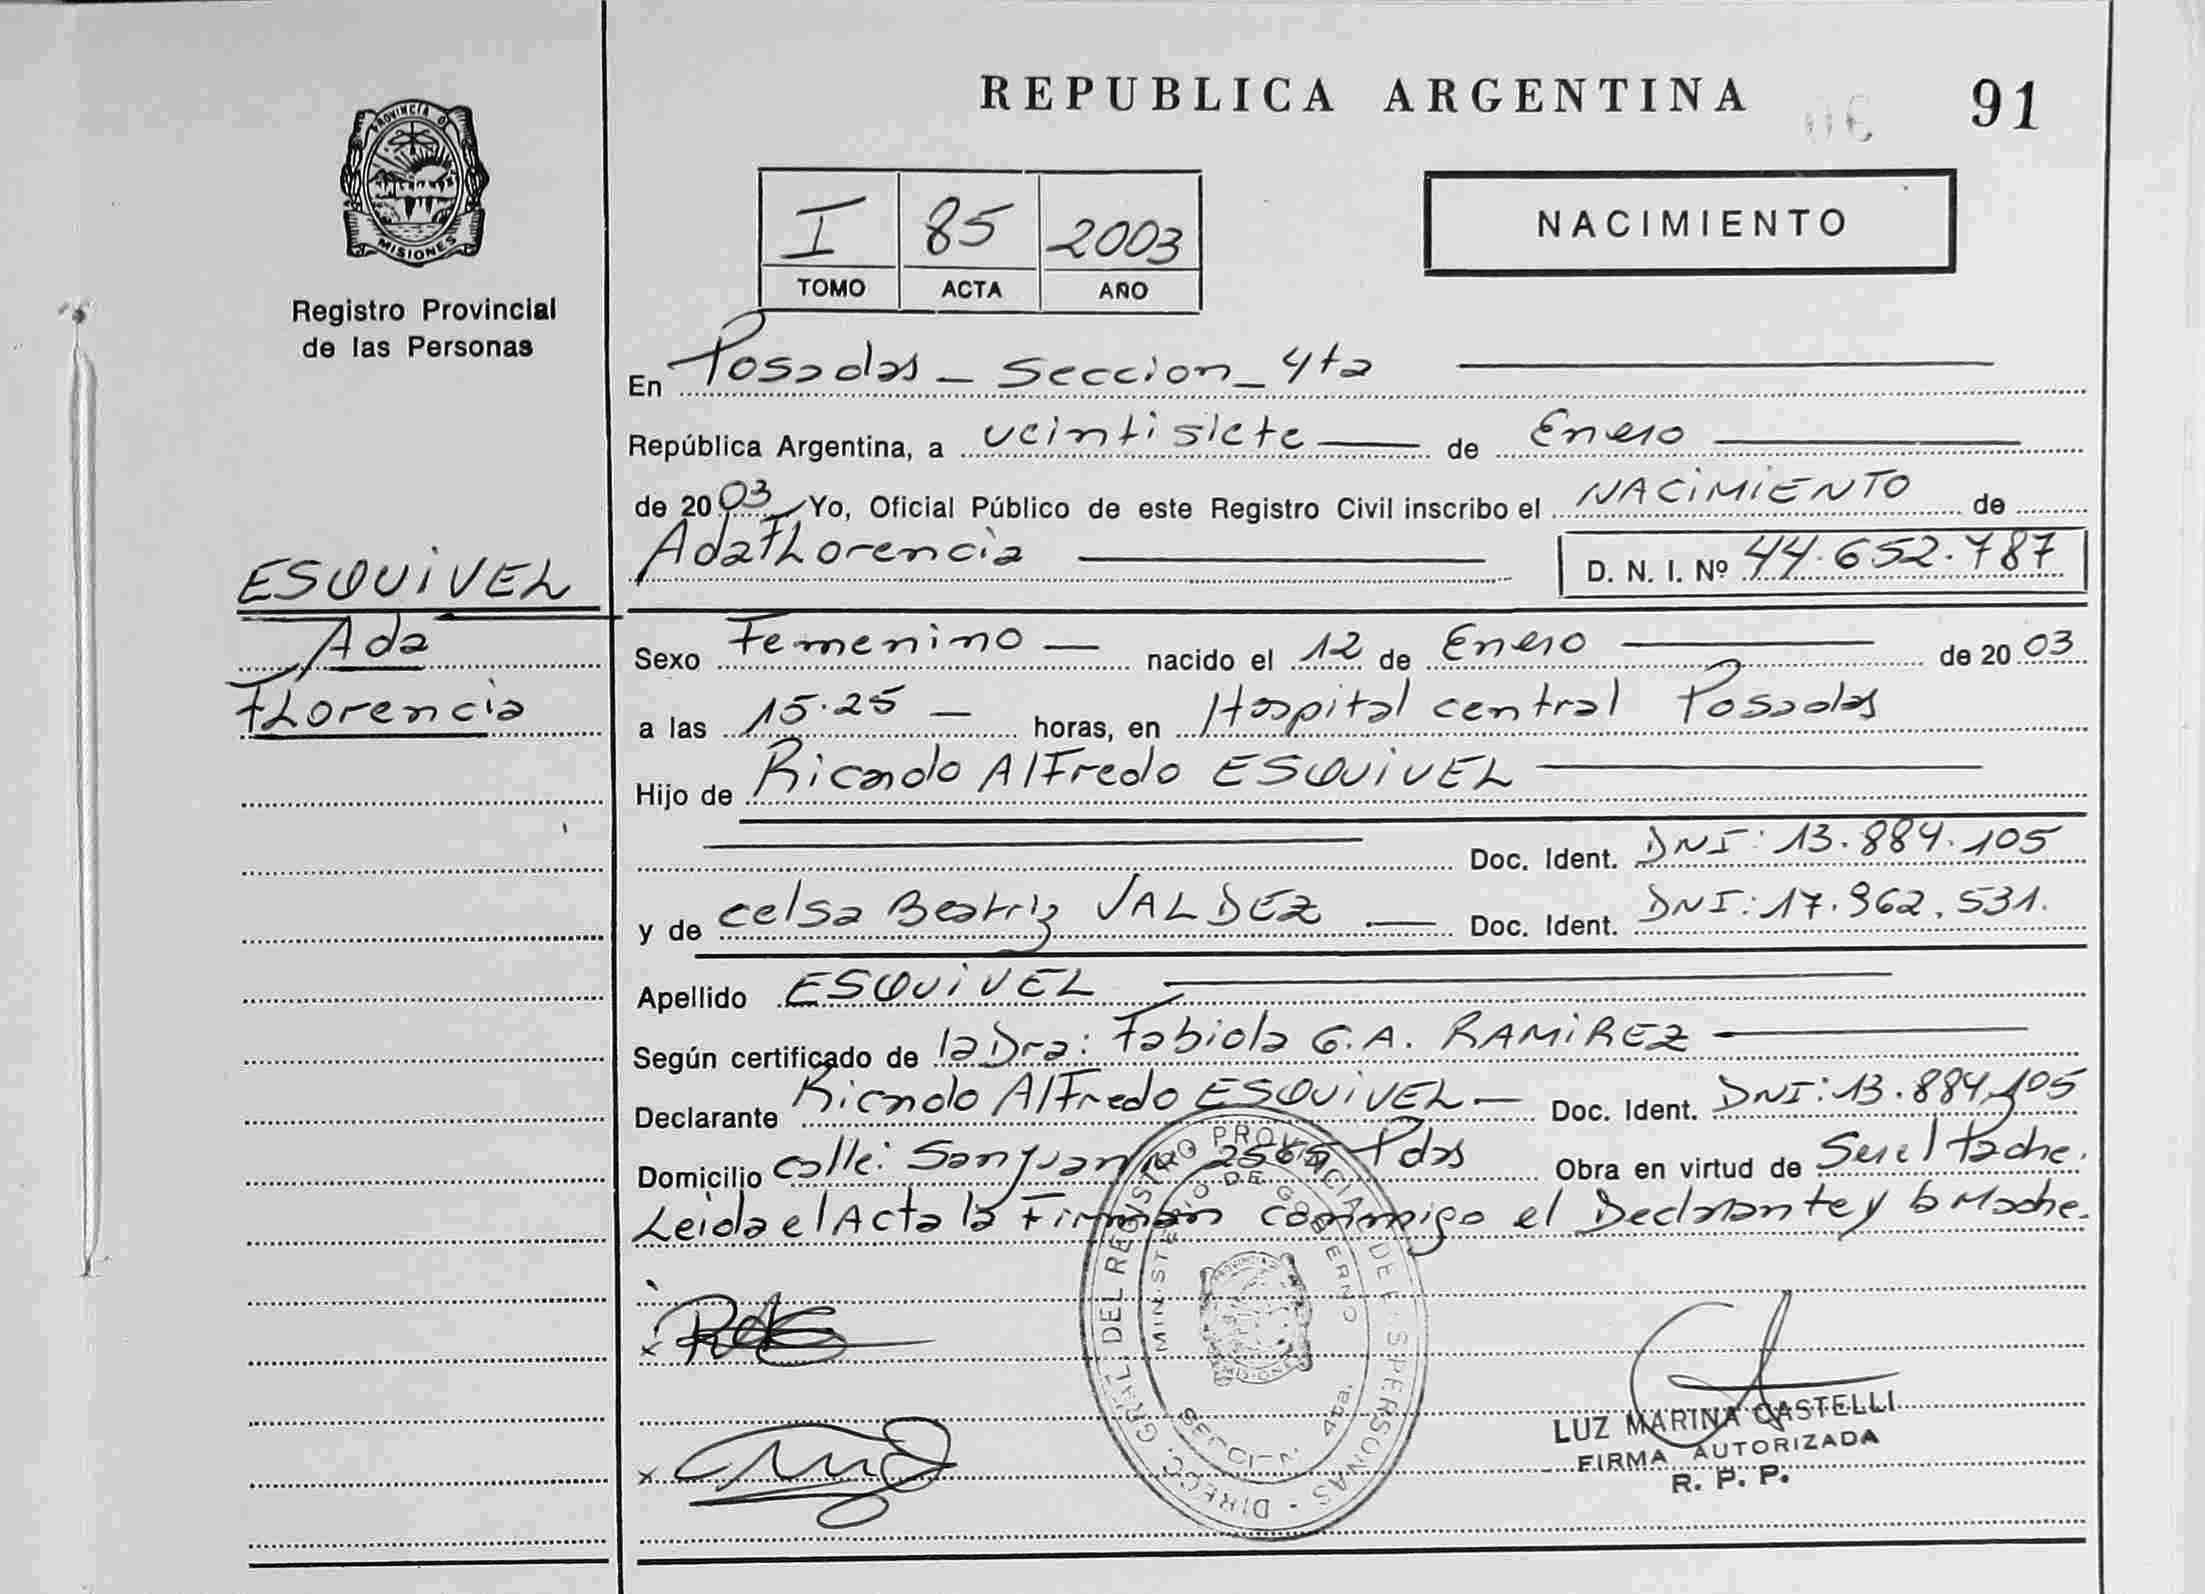 REPUBLICA ARGENTINA 91
PROVINCIA D MISIONES
Registro Provincial
de las Personas
I 85 2003
TOMO ACTA AÑO
NACIMIENTO
En Posadas - Seccion - 4ta
República Argentina, a veintisiete de Enero
de 2003 Yo, Oficial Público de este Registro Civil inscribo el NACIMIENTO de
Ada Florencia D. N. I. Nº 44.652.787
ESQUIVEL
Ada
Florencia
Sexo Femenino nacido el 12 de Enero de 2003
a las 15.25 horas, en Hospital central Posadas
Hijo de Ricardo Alfredo ESQUIVEL
Doc. Ident. DNI: 13.884.105
y de Celsa Beatriz VALDEZ Doc. Ident. DNI: 17.962.531.
Apellido ESQUIVEL
Según certificado de la Dra: Fabiola G.A. RAMIREZ
Declarante Ricardo Alfredo ESQUIVEL Doc. Ident. DNI: 13.884.105
Domicilio calle: San Juan 2565 Pdas Obra en virtud de Ser el Padre.
Leida el Acta la Firman conmigo el Declarante y la Madre.
DIRECC. GRAL. DEL REGISTRO PROVINCIAL DE PERSONAS
MINISTERIO DE GOBIERNO
SECCION 4ta.
LUZ MARINA CASTELLI
FIRMA AUTORIZADA
R. P. P.